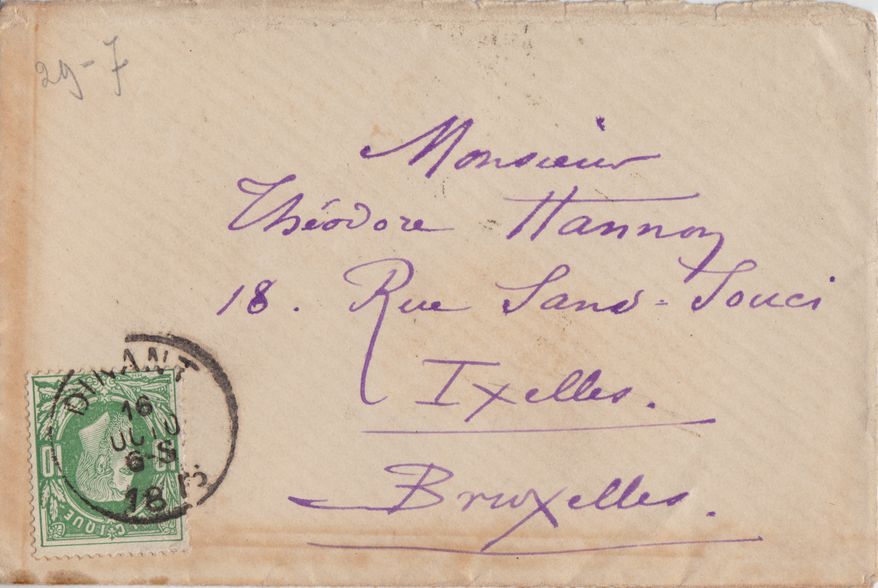 29-7
Monsieur
Théodore Hannon
18. Rue Sans-Souci
Ixelles.
Bruxelles.
DINANT
16
6-S
18
10